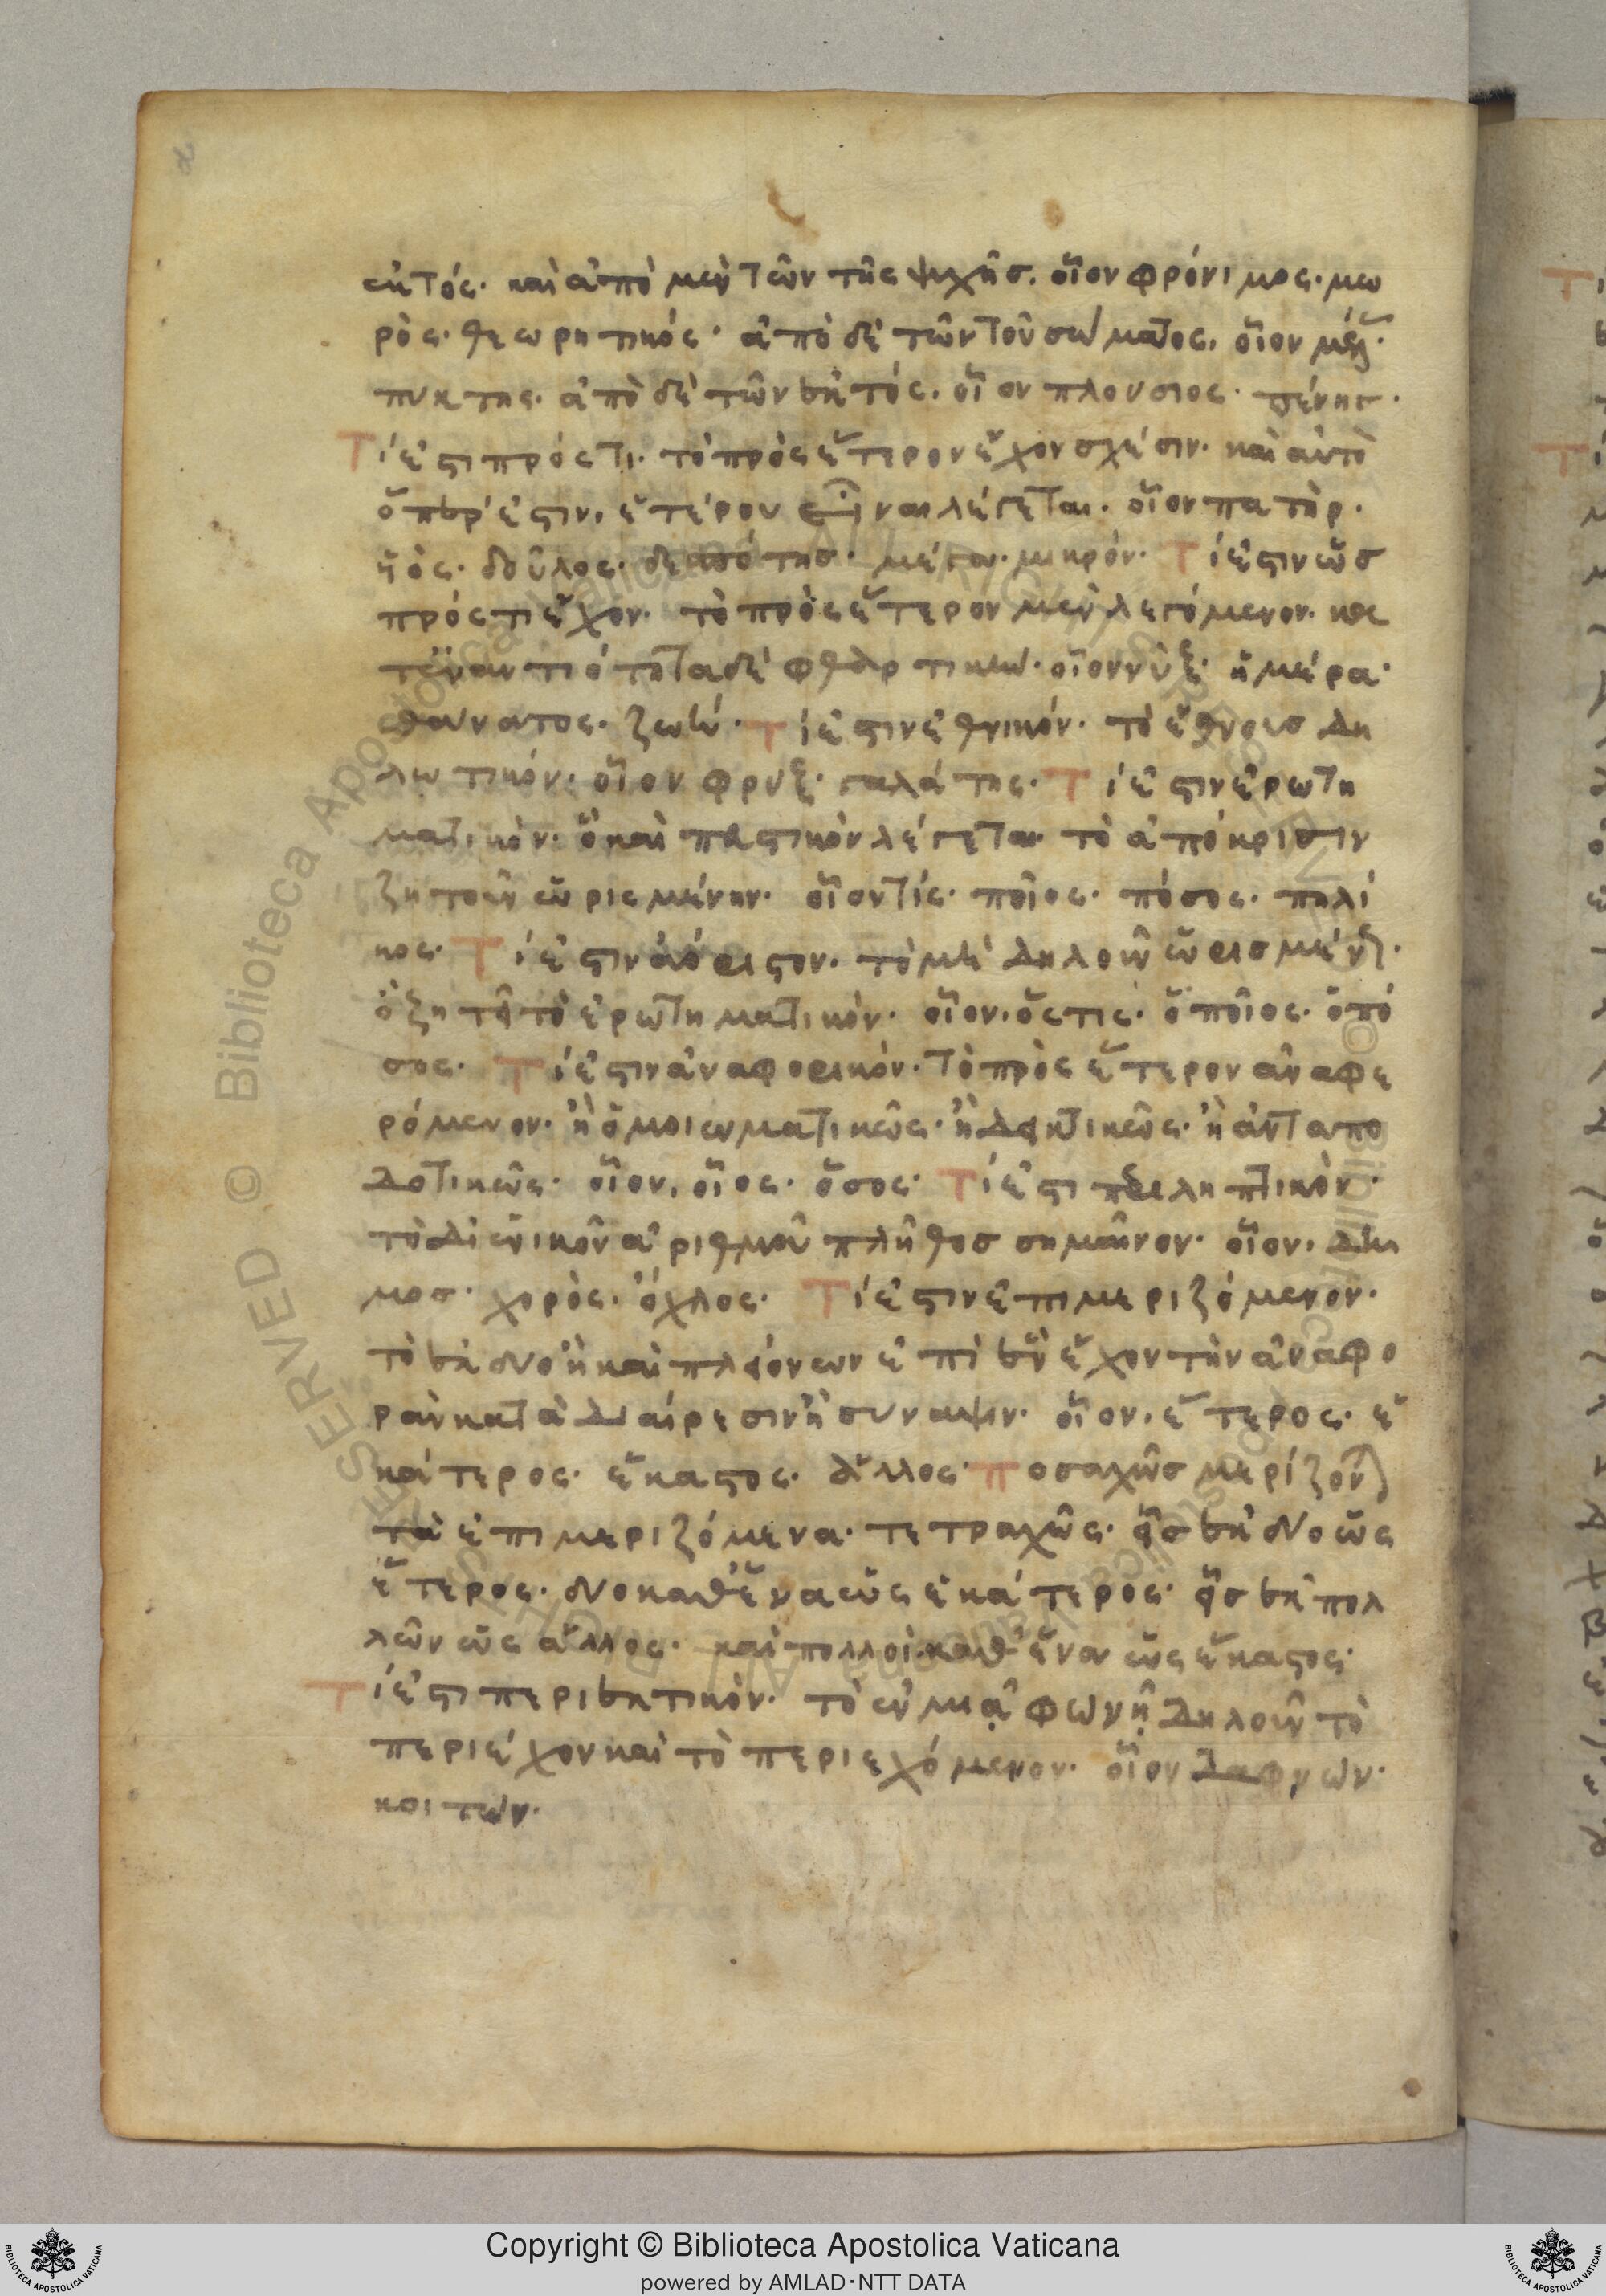 εκτός· καὶ ἀπὸ μὲν τῶν τῆς ψυχῆσ. οἷον φρόνιμος· μω
ρὸς· θεωρητικός· ἀπὸ δὲ τῶν τοῦ σώματος, οἷον
πυκτης. ἀπὸ δὲ τῶν ἐκτός. οἷον πλουσιος· πένησ·
Τί ἐστι πρός τι. τὸ πρὸς ἕτερον ἔχον σχέσιν· καὶ αὐτὸ
ὅπερ ἐστιν, ἑτέρου εἶναι λέγεται. οἷον πατὴρ.
ϋἱὸς· δοῦλος· δεσπότησ· μέγα· μικρόν. Τί ἐστιν ὡσ
πρός τι ἔχον. τὸ πρὸς ἕτερον μὲν λεγόμενον. κα
τεναντιότητα δὲ φθαρτικὸν· οἷον νὺξ· ἡμέρα·
θάνατος. ζωή· Τί ἐστιν ἐθνικόν. τὸ ἔθνουσ δη
λωτικόν· οἷον φρυξ· γαλάτης· Τί ἐστιν ἐρωτη
ματικὸν. ὃ καὶ πευστικὸν λέγεται· τὸ ἀπόκρισιν
ζητοῦν ὡρισμένην· οἷον τίς· ποῖος· πόσος· πηλί
κος· Τί ἐστιν ἀόριστον. τὸ μὴ δηλοῦν ὡρισμένως.
ὃ ζητεῖ τὸ ἐρωτηματικὸν. οἷον, ὅστις· ὁποῖος· ὁπό
σος. Τί ἐστιν ἀναφορικόν. τὸ πρὸς ἕτερον ἀναφε
ρόμενον· ἢ ὁμοιωματικῶς· ἢ δεικτικῶς· ἢ ἀνταπο
δοτικῶς· οἷον, οἷος· ὅσος· Τί ἐστι περιληπτικὸν.
τὸ δι ἑνικοῦ ἀριθμοῦ πλῆθοσ σημαῖνον· οἷον, δῆ
μοσ· χορὸς· ὄχλος· Τί ἐστιν ἐπιμεριζόμενον.
τὸ ἐκ δυο ἢ καὶ πλειόνων ἐπὶ ἓν ἔχον τὴν ἀναφο
ρὰν κατὰ διαίρεσιν ἢ συναψιν· οἷον, ἕτερος· ἑ
κάτερος· ἕκαστος. ἄλλος· Ποσαχῶσ μερίζονται
τὰ ἐπιμεριζόμενα· τετραχῶς· εἷσ ἐκ δυο ὡς
ἕτερος· δυο καθ' ἕνα ὡς ἑκάτερος· εἷσ ἐκ πολ
λῶν ὡς ἄλλος. καὶ πολλοὶ καθ' ἕνα ὡς ἕκαστος·
Τί ἐστι περιεκτικὸν· τὸ ἐν μιᾷ φωνῇ δηλοῦν τὸ
περιέχον καὶ τὸ περιεχόμενον· οἷον δαφνων·
κοιτων·
Copyright © Biblioteca Apostolica Vaticana
powered by AMLAD·NTT DATA